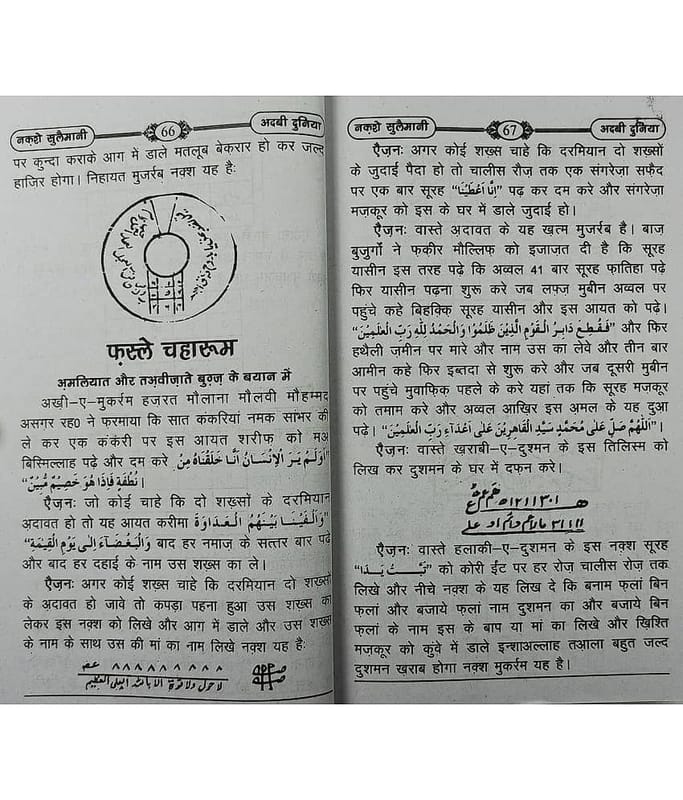 नक़्शे सुलैमानी
66
अदबी दुनिया
पर कुन्दा कराके आग में डाले मतलूब बेकरार हो कर जल्द
हाज़िर होगा। निहायत मुजर्रब नक़्श यह हैः
फ़स्ले चहारूम
अ़मलियात और तअ़वीज़ाते बुग़्ज़ के बयान में
अख़ी-ए-मुकर्रम हज़रत मौलाना मौलवी मौहम्मद
असगर रह0 ने फरमाया कि सात कंकरियां नमक सांभर की
ले कर एक कंकंरी पर इस आयत शरीफ़ को मअ़
बिस्मिल्लाह पढ़े और दम करे اَوَلَمْ يَرَ الْاِنْسَانُ اَنَّا خَلَقْنَاهُ مِنْ“
”نُطْفَةٍ فَاِذَا هُوَ خَصِيْمٌ مُّبِيْنٌ।
ऐज़नः जो कोई चाहे कि दो शख़्सों के दरमियान
अदावत हो तो यह आयत करीमा وَاَلْقَيْنَا بَيْنَهُمُ الْعَدَاوَةَ“
”وَالْبَغْضَاءَ اِلٰى يَوْمِ الْقِيٰمَةِ बाद हर नमाज़ के सत्तर बार पढ़े
और बाद हर दहाई के नाम उस शख़्स का ले।
ऐज़नः अगर कोई शख़्स चाहे कि दरमियान दो शख़्सों
के अ़दावत हो जावे तो कपड़ा पहना हुआ उस शख़्स का
लेकर इस नक़्श को लिखे और आग में डाले और उस शख़्स
के नाम के साथ उस की मां का नाम लिखे नक़्श यह हैः
٨٨٨٨٨٨٨٨٨
لاحول ولاقوة الا بالله العلى العظيم
नक़्शे सुलैमानी
67
अदबी दुनिया
ऐज़नः अगर कोई शख़्स चाहे कि दरमियान दो शख़्सों
के जुदाई पैदा हो तो चालीस रौज़ तक एक संगरेज़ा सफ़ैद
पर एक बार सूरह “اِنَّا اَعْطَيْنَا” पढ़ कर दम करे और संगरेज़ा
मज़कूर को इस के घर में डाले जुदाई हो।
ऐज़नः वास्ते अदावत के यह खत्म मुजर्रब है। बाज़
बुजुर्गो ने फ़क़ीर मौल्लिफ़ को इजाज़त दी है कि सूरह
यासीन इस तरह पढ़े कि अव्वल 41 बार सूरह फ़ातिहा पढ़े
फिर यासीन पढ़ना शुरू करे जब लफ़्ज़ मुबीन अव्वल पर
पहुंचे कहे बिहक्कि सूरह यासीन और इस आयत को पढ़े।
“فَقُطِعَ دَابِرُ الْقَوْمِ الَّذِيْنَ ظَلَمُوْا وَالْحَمْدُ لِلّٰهِ رَبِّ الْعٰلَمِيْنَ” और फिर
हथैली ज़मीन पर मारे और नाम उस का लेवे और तीन बार
आमीन कहे फिर इब्तदा से शुरू करे और जब दूसरी मुबीन
पर पहुंचे मुवाफ़िक़ पहले के करे यहां तक कि सूरह मज़कूर
को तमाम करे और अव्वल आख़िर इस अमल के यह दुआ
पढ़े। “اَللّٰهُمَّ صَلِّ عَلٰى مُحَمَّدٍ سَيِّدِ الْقَاهِرِيْنَ عَلٰى اَعْدَآءِ رَبِّ الْعٰلَمِيْنَ”।
ऐज़नः वास्ते ख़राबी-ए-दुशमन के इस तिलिस्म को
लिख कर दुशमन के घर में दफ़न करे।
ऐज़नः वास्ते हलाकी-ए-दुशमन के इस नक़्श सूरह
“تَبَّتْ يَدَا” को कोरी ईंट पर हर रोज़ चालीस रोज़ तक
लिखे और नीचे नक़्श के यह लिख दे कि बनाम फ़लां बिन
फ़लां और बजाये फ़लां नाम दुशमन का और बजाये बिन
फ़लां के नाम इस के बाप या मां का लिखे और खिश्ति
मज़कूर को कुंवे में डाले इन्शाअल्लाह तआ़ला बहुत जल्द
दुशमन ख़राब होगा नक़्श मुकर्रम यह है।